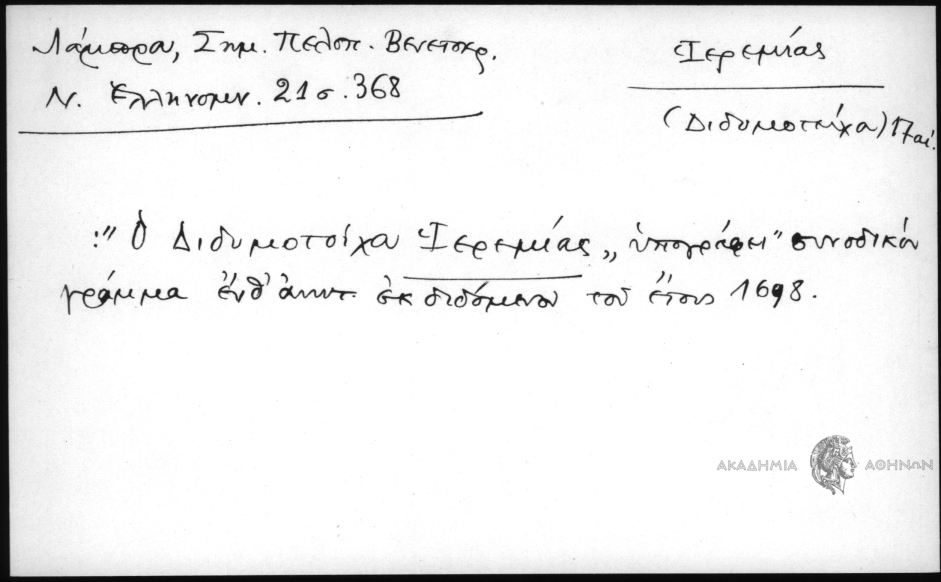 Λάμπρου, Σημ. Πελοπ. Βενετοκρ.
Ν. Ἑλληνομν. 21 σ. 368
Ἱερεμίας
(Διδυμοτείχου) 17 αἰ.
:" Ὁ Διδυμοτοίχου Ἱερεμίας „ὑπογράφει" συνοδικόν
γράμμα ἐνθ' ἀνωτ. ἐκδιδόμενον τοῦ ἔτους 1698.
ΑΚΑΔΗΜΙΑ ΑΘΗΝΩΝ